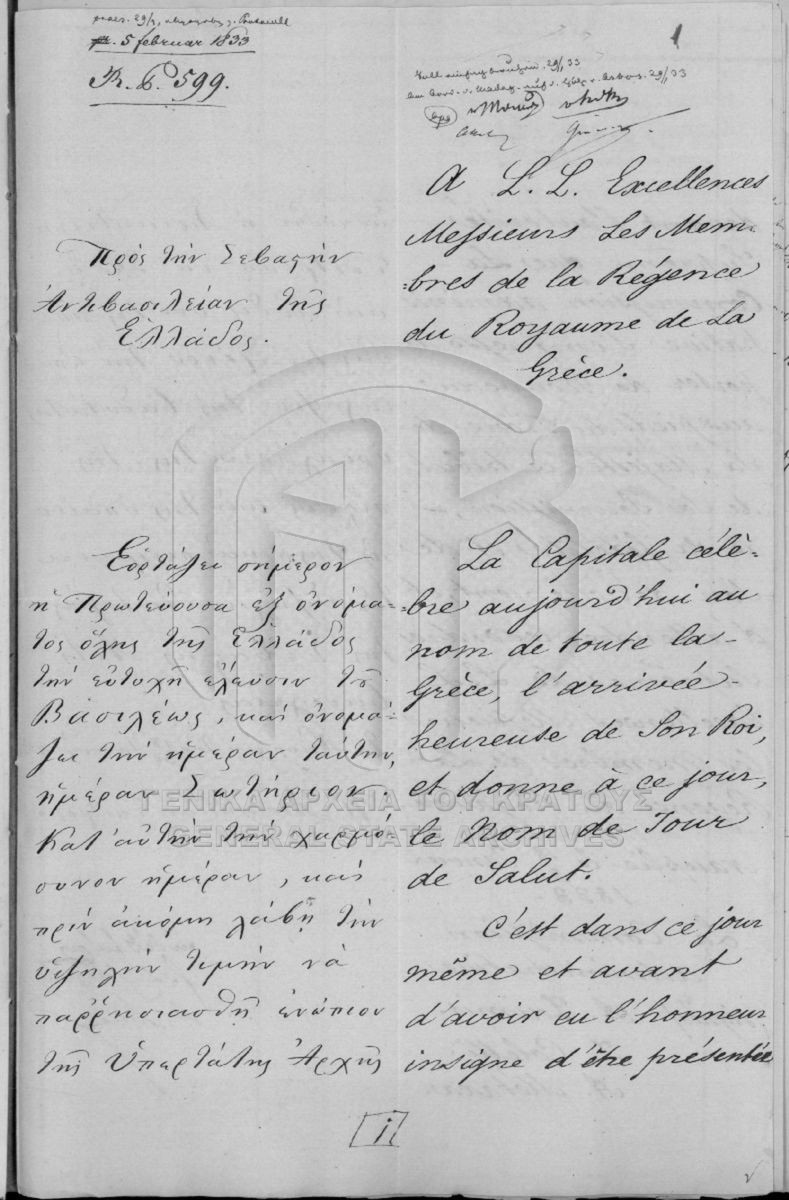 5 februar 1833
R. b. 599.
1
29/33
29/33
Πρὸς τὴν Σεβαστὴν
Ἀντιβασιλείαν τῆς
Ἑλλάδος.
A L. L. Excellences
Messieurs Les Mem-
-bres de la Régence
du Royaume de La
Grèce.
Ἑορτάζει σήμερον
ἡ Πρωτεύουσα ἐξ ὀνόμα-
τος ὅλης τῆς Ἑλλάδος
τὴν εὐτυχῆ ἔλευσιν τοῦ
Βασιλέως, καὶ ὀνομά-
ζει τὴν ἡμέραν ταύτην,
ἡμέραν Σωτήριον.
Κατ' αὐτὴν τὴν χαρμό-
συνον ἡμέραν, καὶ
πρὶν ἀκόμη λάβῃ τὴν
ὑψηλὴν τιμὴν νὰ
παῤῥησιασθῇ ἐνώπιον
τῆς Ὑπερτάτης Ἀρχῆς
La Capitale célè-
-bre aujourd'hui au
nom de toute la
Grèce, l'arrivée
heureuse de Son Roi,
et donne à ce jour,
le Nom de Jour
de Salut.
C'est dans ce jour
même et avant
d'avoir eu l'honneur
insigne d'être présentée
1
ΓΕΝΙΚΑ ΑΡΧΕΙΑ ΤΟΥ ΚΡΑΤΟΥΣ
GENERAL STATE ARCHIVES